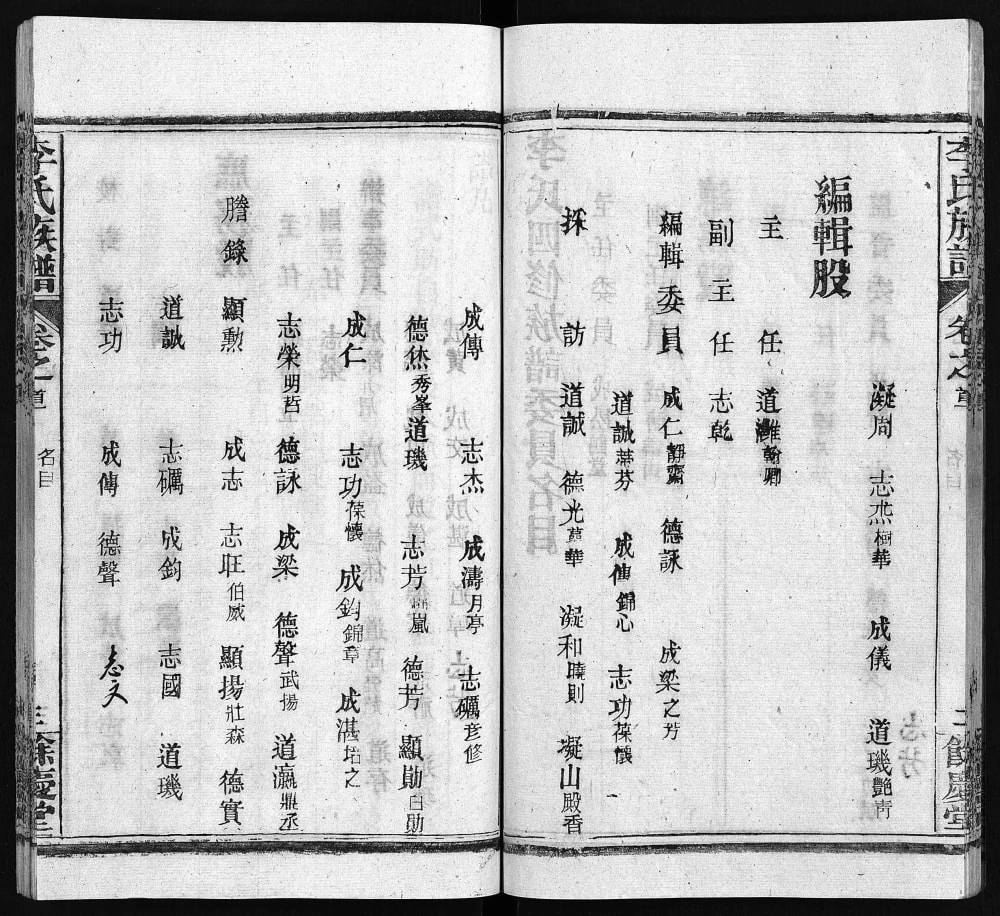 李氏族譜 卷之首 名目 二 餘慶堂
凝周 志杰樹華 成儀 道璣艷青
編輯股
主任 道灘翰卿
副主任 志乾
編輯委員 成仁靜齋 德詠 成梁之芳
道誠葉芬 成傳錦心 志功葆懷
採訪 道誠 德光華 凝和曉則 凝山殿香
成傳 志杰 成濤月亭 志礪彥修
德烋秀峯 道璣 志芳嵐 德芳 顯勛白勛
成仁 志功葆懷 成鈞錦章 成湛培之
志榮明哲 德詠 成梁 德聲武揚 道瀛鼎丞
謄錄 顯勲 成志 志旺伯威 顯揚壯森 德實
道誠 志礪 成鈞 志國 道璣
志功 成傳 德聲 志文
李氏族譜 卷之首 名目 三 餘慶堂